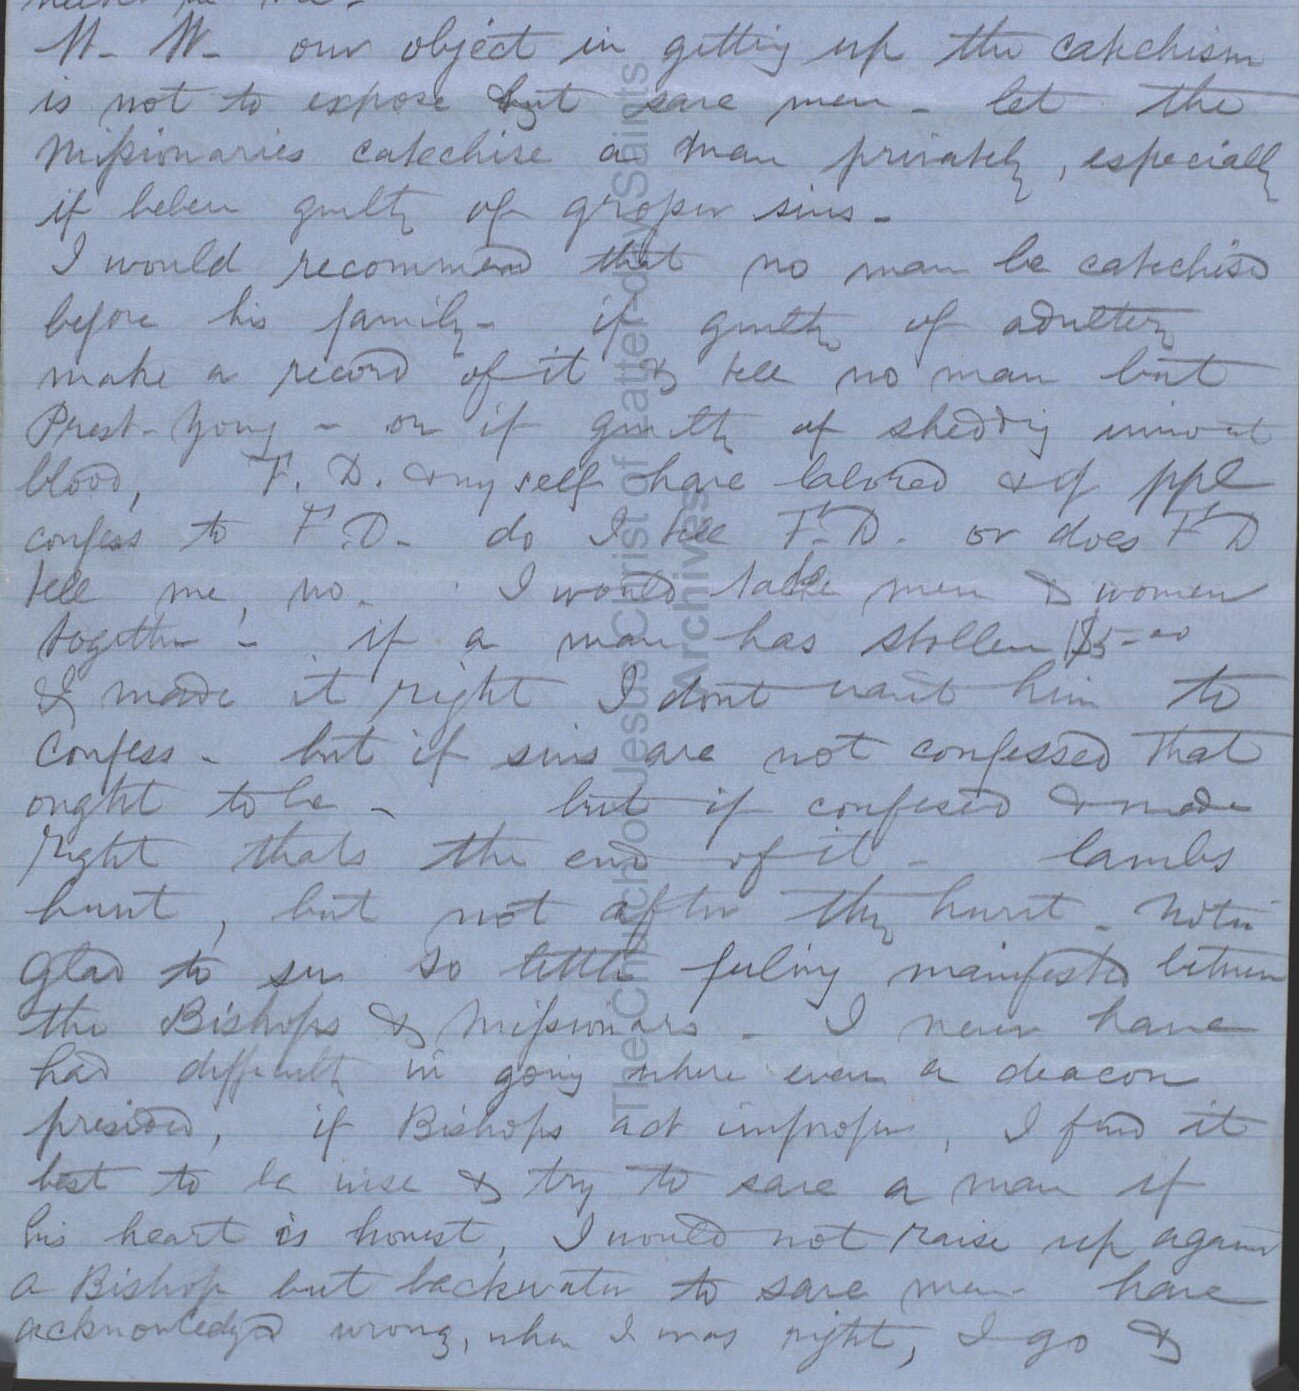 W. W. our object in getting up the catechism
is not to expose but save men - let the
Missionaries catechise a man privately, especially
if guilty of grosser sins -
I would recommend that no man be catechised
before his family - if guilty of adultery
make a record of it & tell no man but
Prest. Young - or if guilty of shedding innocent
blood, F. D. & myself have labored & if ppl
confess to F. D. - do I tell F. D. or does F D
tell me, no. I would take men & women
together - if a man has stollen $5-00
& made it right I dont want him to
confess - but if sins are not confessed that
ought to be - but if confesed & made
right thats the end of it - lambs
hunt, but not after they hunt -
glad to see so little feeling manifested between
the Bishops & Missionars - I never have
had difficulty in going where even a deacon
presided, if Bishops act improper, I find it
best to be wise & try to save a man if
his heart is honest, I would not raise up against
a Bishop but backwater to save men - have
acknowledged wrong, when I was right, I go &
The Church of Jesus Christ of Latter-day Saints
Archives